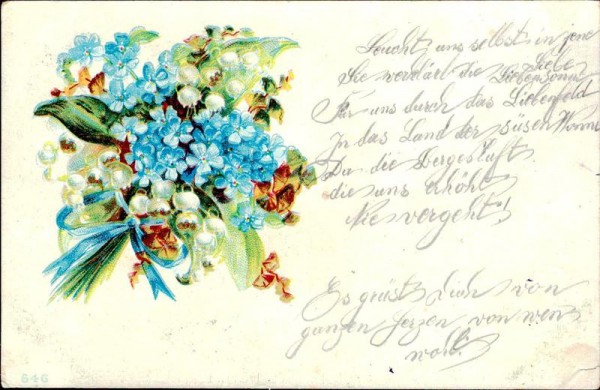 Leucht uns selbst in jene
See verklärt die Liebe
Liebensonne
Für uns durch das Liebenfeld
In das Land der süsen Wonne
Da die Bergesluft
die uns erhöht
Nie vergeht!
Es grüst Dich von
ganzen Herzen von wem
wohl?
646